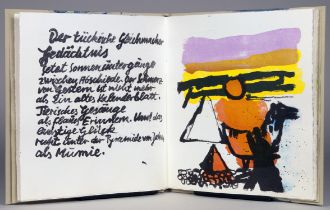 Der tückische Gleichmacher
Gedächtnis
setzt Sonnenuntergänge
zwischen Abschiede. Der Schmerz
von Gestern ist nicht mehr
als Ein altes Kalenderblatt.
Tierisches
als Erinnern. Und das
Glück
hinter der Pyramide von
als Mumie.